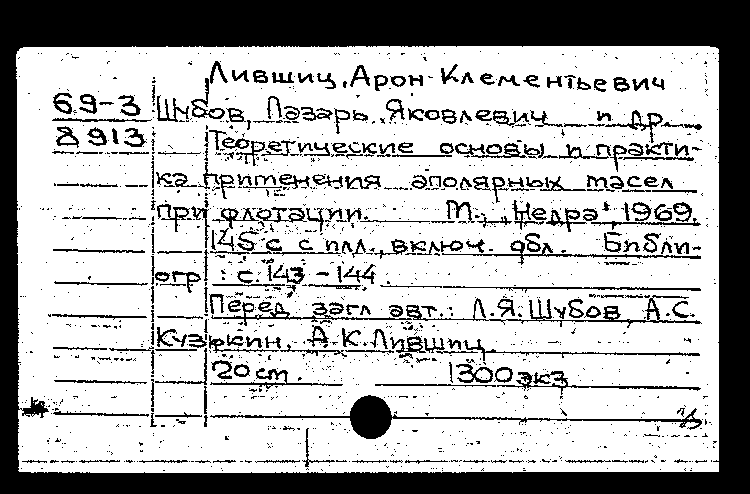 Лившиц, Арон Клементьевич
69-3 Шубов, Лазарь Яковлевич и др.
8913 Теоретические основы и практи-
ка применения аполярных масел
при флотации. М., "Недра", 1969.
145 с с илл., включ. обл. Библи-
огр : с. 143 - 144.
Перед загл авт.: Л.Я. Шубов, А.С.
Кузькин, А.К. Лившиц.
20 см. 1300 экз